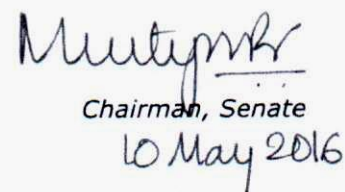 Chairman, Senate
10 May 2016